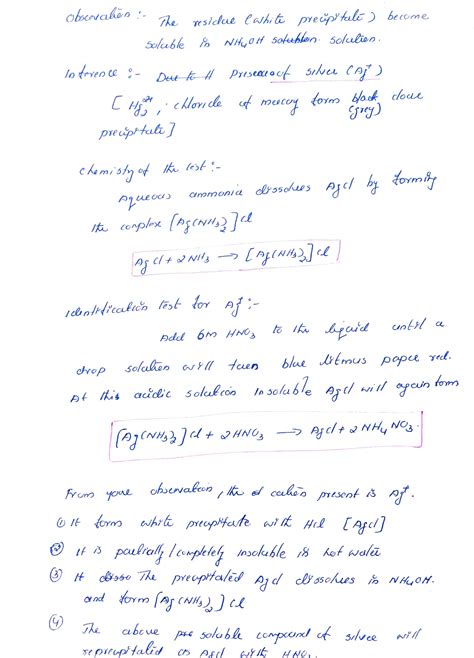 Observation :- The residue (white precipitate) become
soluble in NH4OH solution.
Inference :- Due to presence of silver (Ag+)
[ Hg2 2+, chloride of mercury form black (grey) colour
precipitate]
Chemistry of the test :-
Aqueous ammonia dissolves AgCl by forming
the complex [Ag(NH3)2]Cl
AgCl + 2NH3 → [Ag(NH3)2]Cl
Identification test for Ag+ :-
Add 6M HNO3 to the liquid until a
drop solution will turn blue litmus paper red.
At this acidic solution insoluble AgCl will again form
[Ag(NH3)2]Cl + 2HNO3 → AgCl + 2NH4NO3.
From your observation, the cation present is Ag+.
① It form white precipitate with Hcl [AgCl]
② It is partially/completely insoluble in hot water
③ It The precipitated AgCl dissolves in NH4OH.
and form [Ag(NH3)2]Cl
④ The above soluble compound of silver will
reprecipitated as AgCl with HNO3.